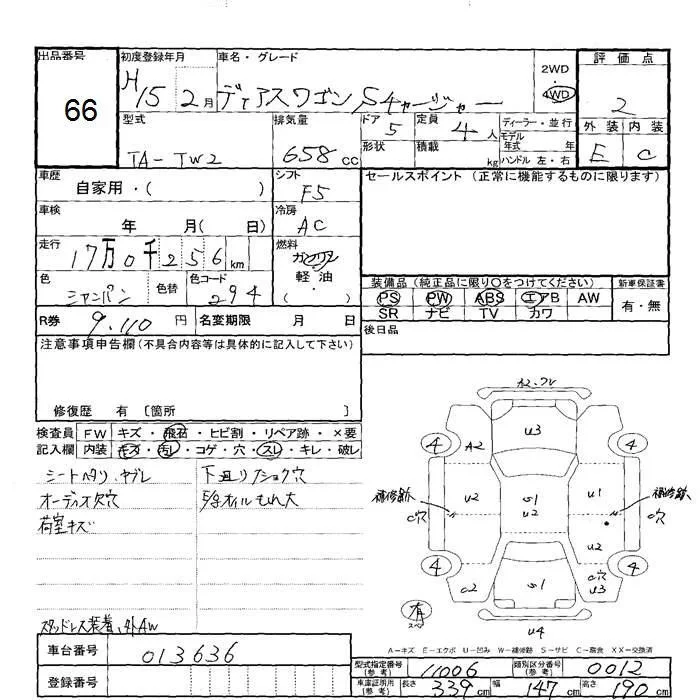 出品番号 初度登録年月 車名・グレード 評価点
66
H15 2月 ディアスワゴン Sチャージャー
2WD
4WD
2
型式 排気量 ドア 定員 ディーラー・並行 外装 内装
TA-TW2 658cc 5 4人
形状 積載 kg
モデル年式 年
ハンドル 左・右
E C
車歴 自家用・( )
シフト F5
セールスポイント (正常に機能するものに限ります)
車検 年 月( 日)
冷房 AC
走行 17万0千256km
燃料 ガソリン 軽油・( )
色 シャンパン 色替 色コード 294
装備品 (純正品に限り○をつけてください) 新車保証書
PS PW ABS エアB AW 有・無
SR ナビ TV カワ
R券 9,110円 名変期限 月 日
後日品
注意事項申告欄(不具合内容等は具体的に記入して下さい)
修復歴 有 〔箇所 〕
検査員 FW キズ・飛石・ヒビ割・リペア跡・×要
記入欄 内装 キズ・汚レ・コゲ・穴・スレ・キレ・破レ
シートヘタリ、ヤブレ
オーディオ欠穴
荷室キズ
スタッドレス装着、外AW
車台番号 013636
登録番号
A2
U3
4 4
U2 S1 U2 U1
補修跡 補修跡
C穴 穴
U2
4 4
C2 S1 C穴 U3
有
スペア
U4
A-キズ E-エクボ U-凹み W-補修跡 S-サビ C-腐食 XX-交換済
型式指定番号(参考) 11006 類別区分番号(参考) 0012
車庫証明用(参考) 長さ 339cm 幅 147cm 高さ 190cm